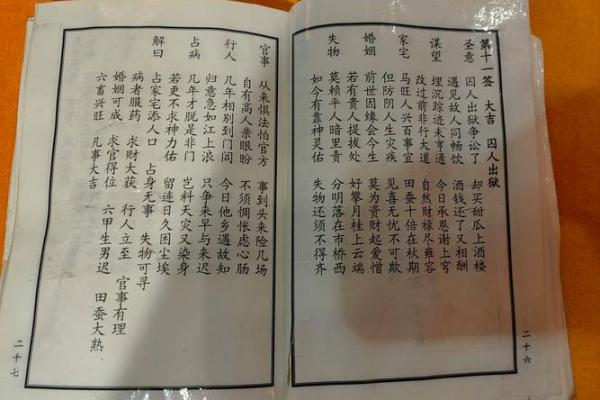 第十一签 大吉 囚人出狱
圣意 囚人出狱争讼了 却买甜瓜上酒楼
遇见故人同畅饮 酒钱还了又相酬
谋望 埋沉踪迹未亨通 今日承恩谢上穹
改过前非行大道 自然财禄尽雍容
家宅 马旺人兴百事宜 田蚕十倍在秋期
但防阴人生灾疾 见喜无忧不可欺
婚姻 前世因缘会今生 莫为资财起爱憎
若有贵人提拔处 好攀月桂上云端
失物 莫赖平人暗里责 分明落在市桥西
如今有靠神灵佑 失物还须不得齐
二十六
官事 从来惧法怕官方 事到头来险几场
自有高人亲眼盼 不须惆怅虑心肠
行人 几年相别到门闾 今日他乡遇故知
归意急如江上浪 只争来早与来迟
占病 几年才脱是非门 岂料天灾又染身
若更不求神力佑 留连日久困尘埃
解曰 占家宅添人口 占身无事 失物可寻
病者服药 求财大获 行人立至 官事有理
婚姻可成 求官得位 六甲生男迟
六畜兴旺 凡事大吉 田蚕大熟
二十七